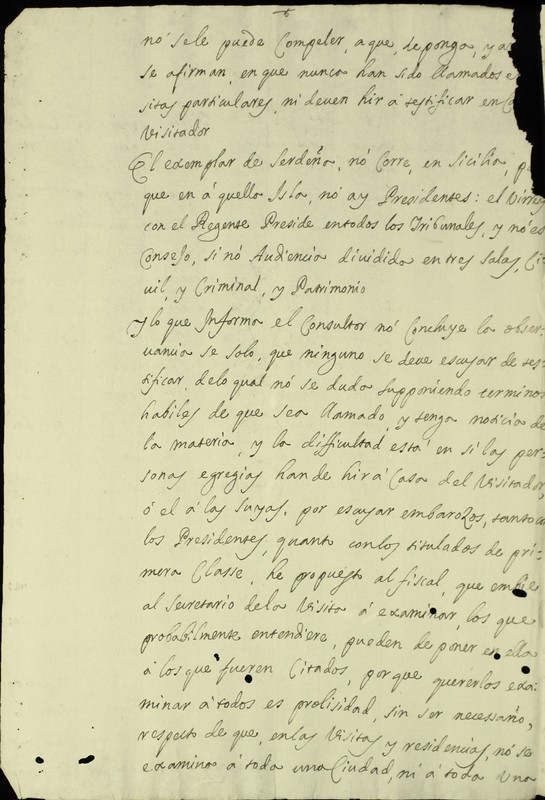 no sele puede Compeler, a que, deponga, y as
se afirman, en que nunca han sido llamados e
sitas particulares, ni deven hir á testificar en C
Visitador
El exemplar de Serdeña, nó Corre, en Sicilia p
que en áquella Isla, nó ay Presidentes: el Virrey
con el Regente Preside entodos los Tribunales, y nó es
Consejo, sinó Audiencia dividida en tres salas, Ci-
uil, y Criminal, y Patrimonio
Ylo que Informa el Consultor nó Concluye la obser-
uancia se solo, que ninguno se deve escusar de tes-
tificar, delo qual nó se duda supponiendo terminos
habiles de que sea llamado, y tenga noticia de
la materia, y la difficultad está en si las per-
sonas egregias han de hir á Casa del Visitador,
ó el á las suyas. por escusar embarazos, tanto con
los Presidentes, quanto conlos titulados de pri-
mera Classe, he propuesto al fiscal, que embie
al Secretario dela Visita á examinar, los que
probabilmente entendiere, pueden de poner en ella
á los que fueren Citados, porque quererlos exa-
minar á todos es prolisidad, sin ser necessario,
respeto de que, enlas Visitas y residencias, nó se
examina á toda una Ciudad, ni á toda una